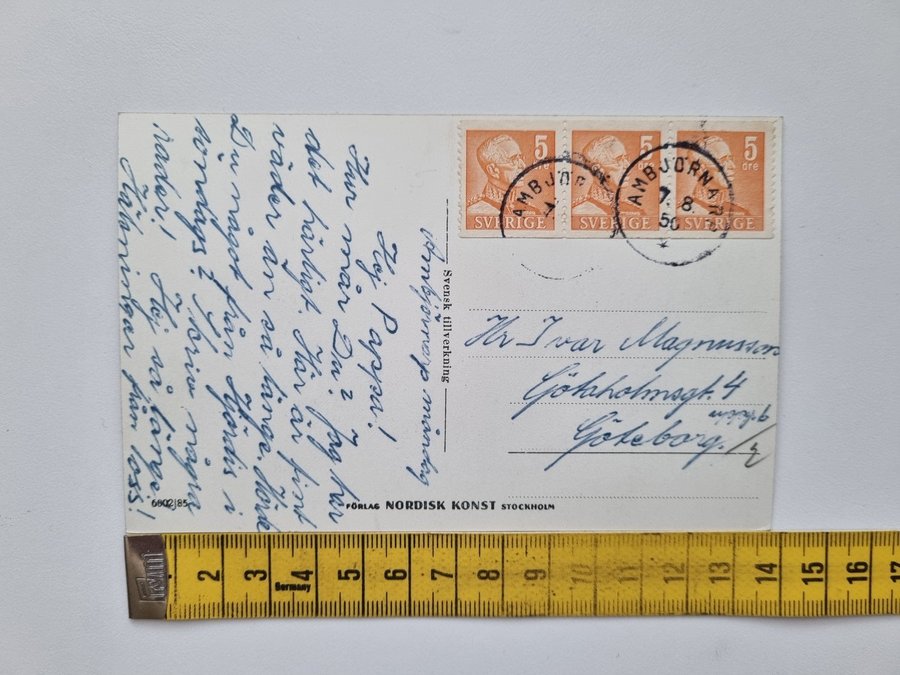 5
öre
SVERIGE
5
öre
SVERIGE
5
öre
SVERIGE
AMBJÖR
AMBJÖRNAR
7.8
50
Ambjörnarp måndag
Hej Pappa!
Hur mår Du? Jag har
det härligt. Här är fint
väder än så länge. Hörde
Du något från Hjördis i
söndags? Skriv några
rader! Hej så länge!
Hälsningar från
Svensk tillverkning
Hr Ivar Magnusson
Göteborg.
6602/85
FÖRLAG NORDISK KONST STOCKHOLM
2 3 4 5 6 7 8 9 10 11 12 13 14 15 16 17
Germany